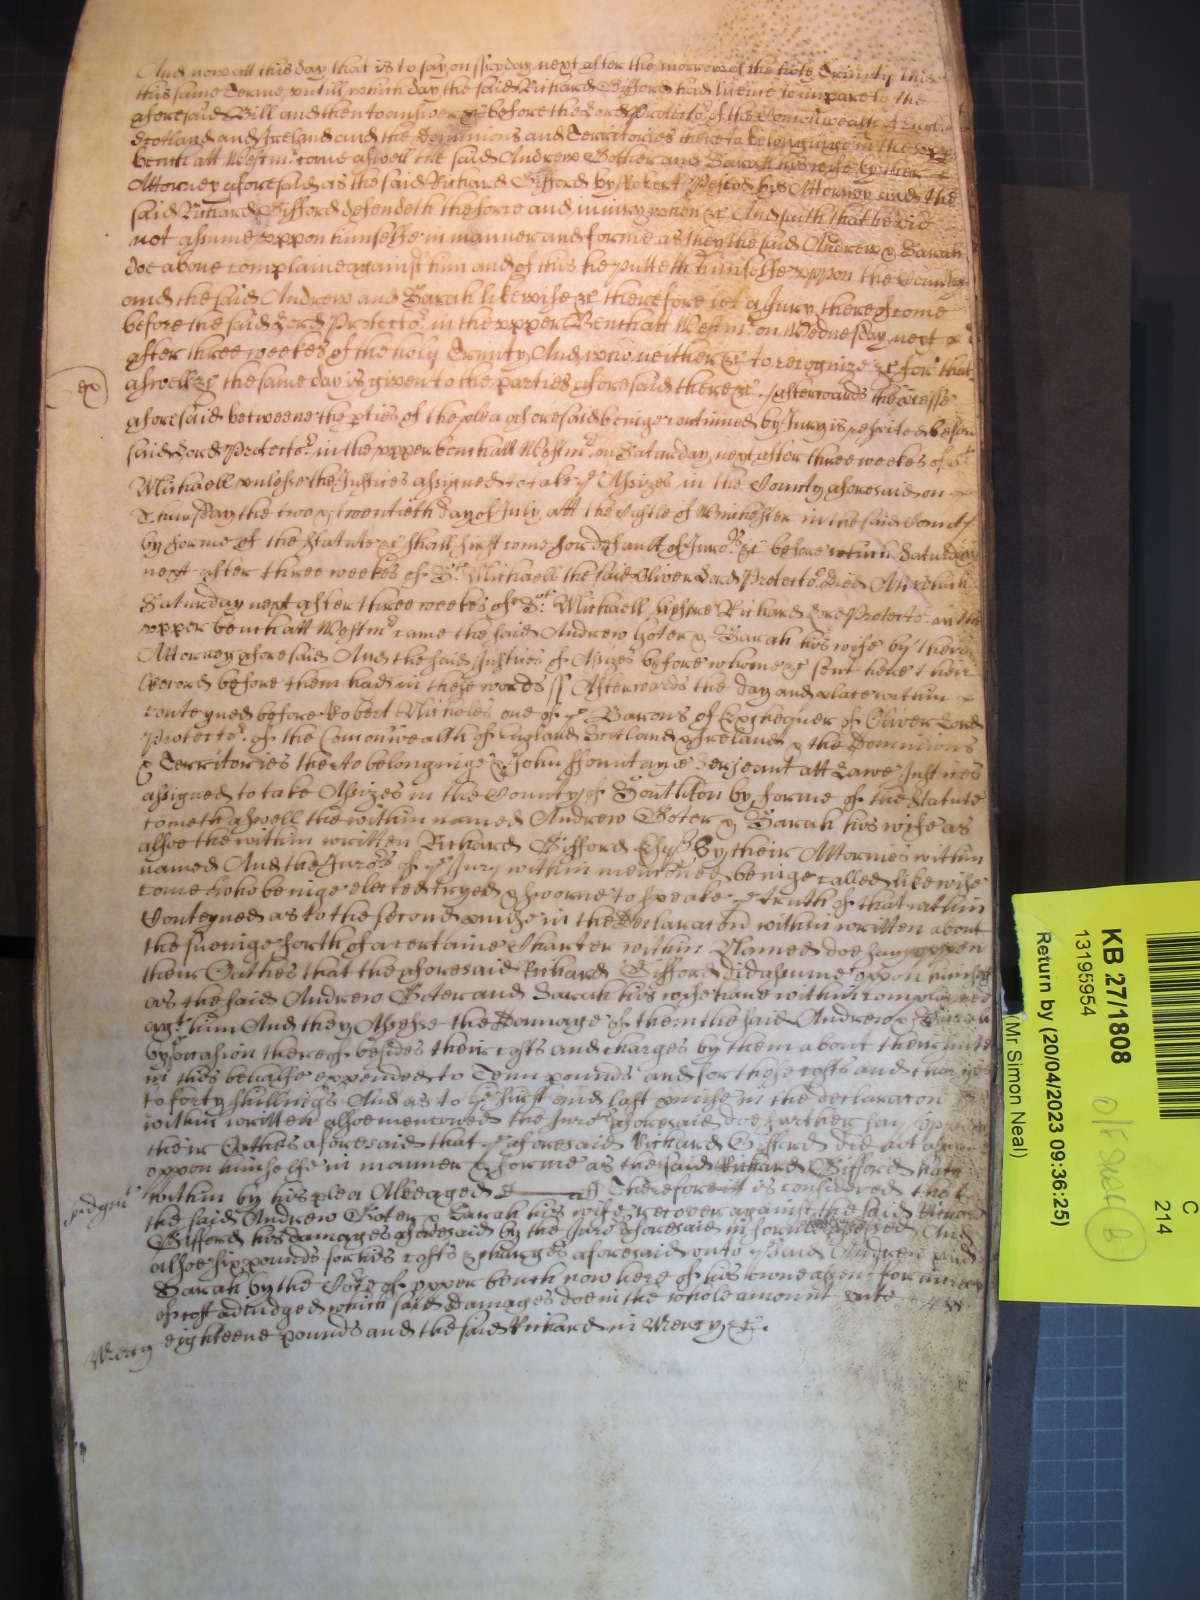 And now att this day that is to say on ffryday next after the morrow of the holy Trinity this
this same Terme untill which day the said Richard Gifford had licence to imparle to the
aforesaid Bill and then to answer &c before the Lord Protector of the Comonwealth of England
Scotland and Ireland and the Dominions and Territories thereto belonginge in the upper
bench att Westmr came aswell the said Andrew Goter and Sarah his wife by their
Attorney aforesaid as the said Richard Gifford by Robert Pescod his Attorney and the
said Richard Gifford defendeth the force and iniury when &c And saith that he did
not assume uppon himselfe in manner and forme as they the said Andrew & Sarah
doe above complaine against him and of this he putteth himselfe uppon the Country
and the said Andrew and Sarah likewise &c therefore lett a Jury thereof come
before the said Lord Protector in the upper Bench att Westmr on Wednesday next
after three weekes of the holy Trinity And who neither &c to recognize &c for that
aswell &c the same day is given to the parties aforesaid there &c Afterwards the pcesse
aforesaid betweene the pties of the plea aforesaid beinge continued by Jury is respited before
said Lord Protector in the upper bench att Westmr on Saturday next after three weekes of St
Michaell unlesse the Justices assigned to take ye Assizes in the County aforesaid on
Thursday the two & twentieth day of July att the Castle of Winchester in the said County
by forme of the Statute &c shall first come for default of Juro.rs &c before which Saturday
next after three weekes of St Michaell the said Oliver Lord Protector died At which
Saturday next after three weekes of St Michaell before Richard Lord Protector in the
upper bench att Westmr came the said Andrew Goter & Sarah his wife by their
Attorney aforesaid And the said Justices of Assizes before whome &c sent here their
Record before them had in these words ss Afterwards the day and place within
conteyned before Robert Nicholas one of ye Barons of Exchequer of Oliver Lord
Protector of the Comonwealth of England Scotland & Ireland & the Dominions
& Territories thereto belonginge & John ffountayne Serjeant att Lawe Justices
assigned to take Assizes in the County of Southton by forme of the Statute
cometh aswell the within named Andrew Goter & Sarah his wife as
alsoe the within written Richard Gifford Esqr by their Attornies within
named And the Juro.rs of ye Jury within menconed beinge called likewise
come who beinge elected tryed & sworne to speake ye truth of that within
Conteyned as to the second pmise in the Declaracon within written about
the sueinge forth of a certaine Charter within Named doe say uppon
their Oathes that the aforesaid Richard Gifford did assume uppon himselfe
as the said Andrew Goter and Sarah his wife have within complained
agt him And they Assesse the Damage of them the said Andrew & Sarah
by occasion thereof besides their costs and charges by them about their suite
in this behalfe expended to Tenn pounds and for those costs and charges
to forty shillings And as to ye first and last pmise in the declaracon
within written alsoe menconed the Juro.rs aforesaid doe further say uppon
their Oathes aforesaid that ye aforesaid Richard Gifford did not assume
uppon himselfe in manner & forme as the said Richard Gifford hath
within by his plea Alleaged Therefore it is considered that
the said Andrew Goter & Sarah his wife recover against the said Richard
Gifford his damages aforesaid by the Juro.rs aforesaid in forme assessed And
alsoe six pounds for his costs & charges aforesaid unto ye said Andrew and
Sarah by the Court of upper bench now here of his owne assent for increase
of cost adiudged which said Damages doe in the whole amount unto
eighteene pounds and the said Richard in Mercy &c.
ex
Judgmt
Mercy
KB 27/1808
13195954
Return by (20/04/2023 09:36:25)
(Mr Simon Neal)
C
214
B